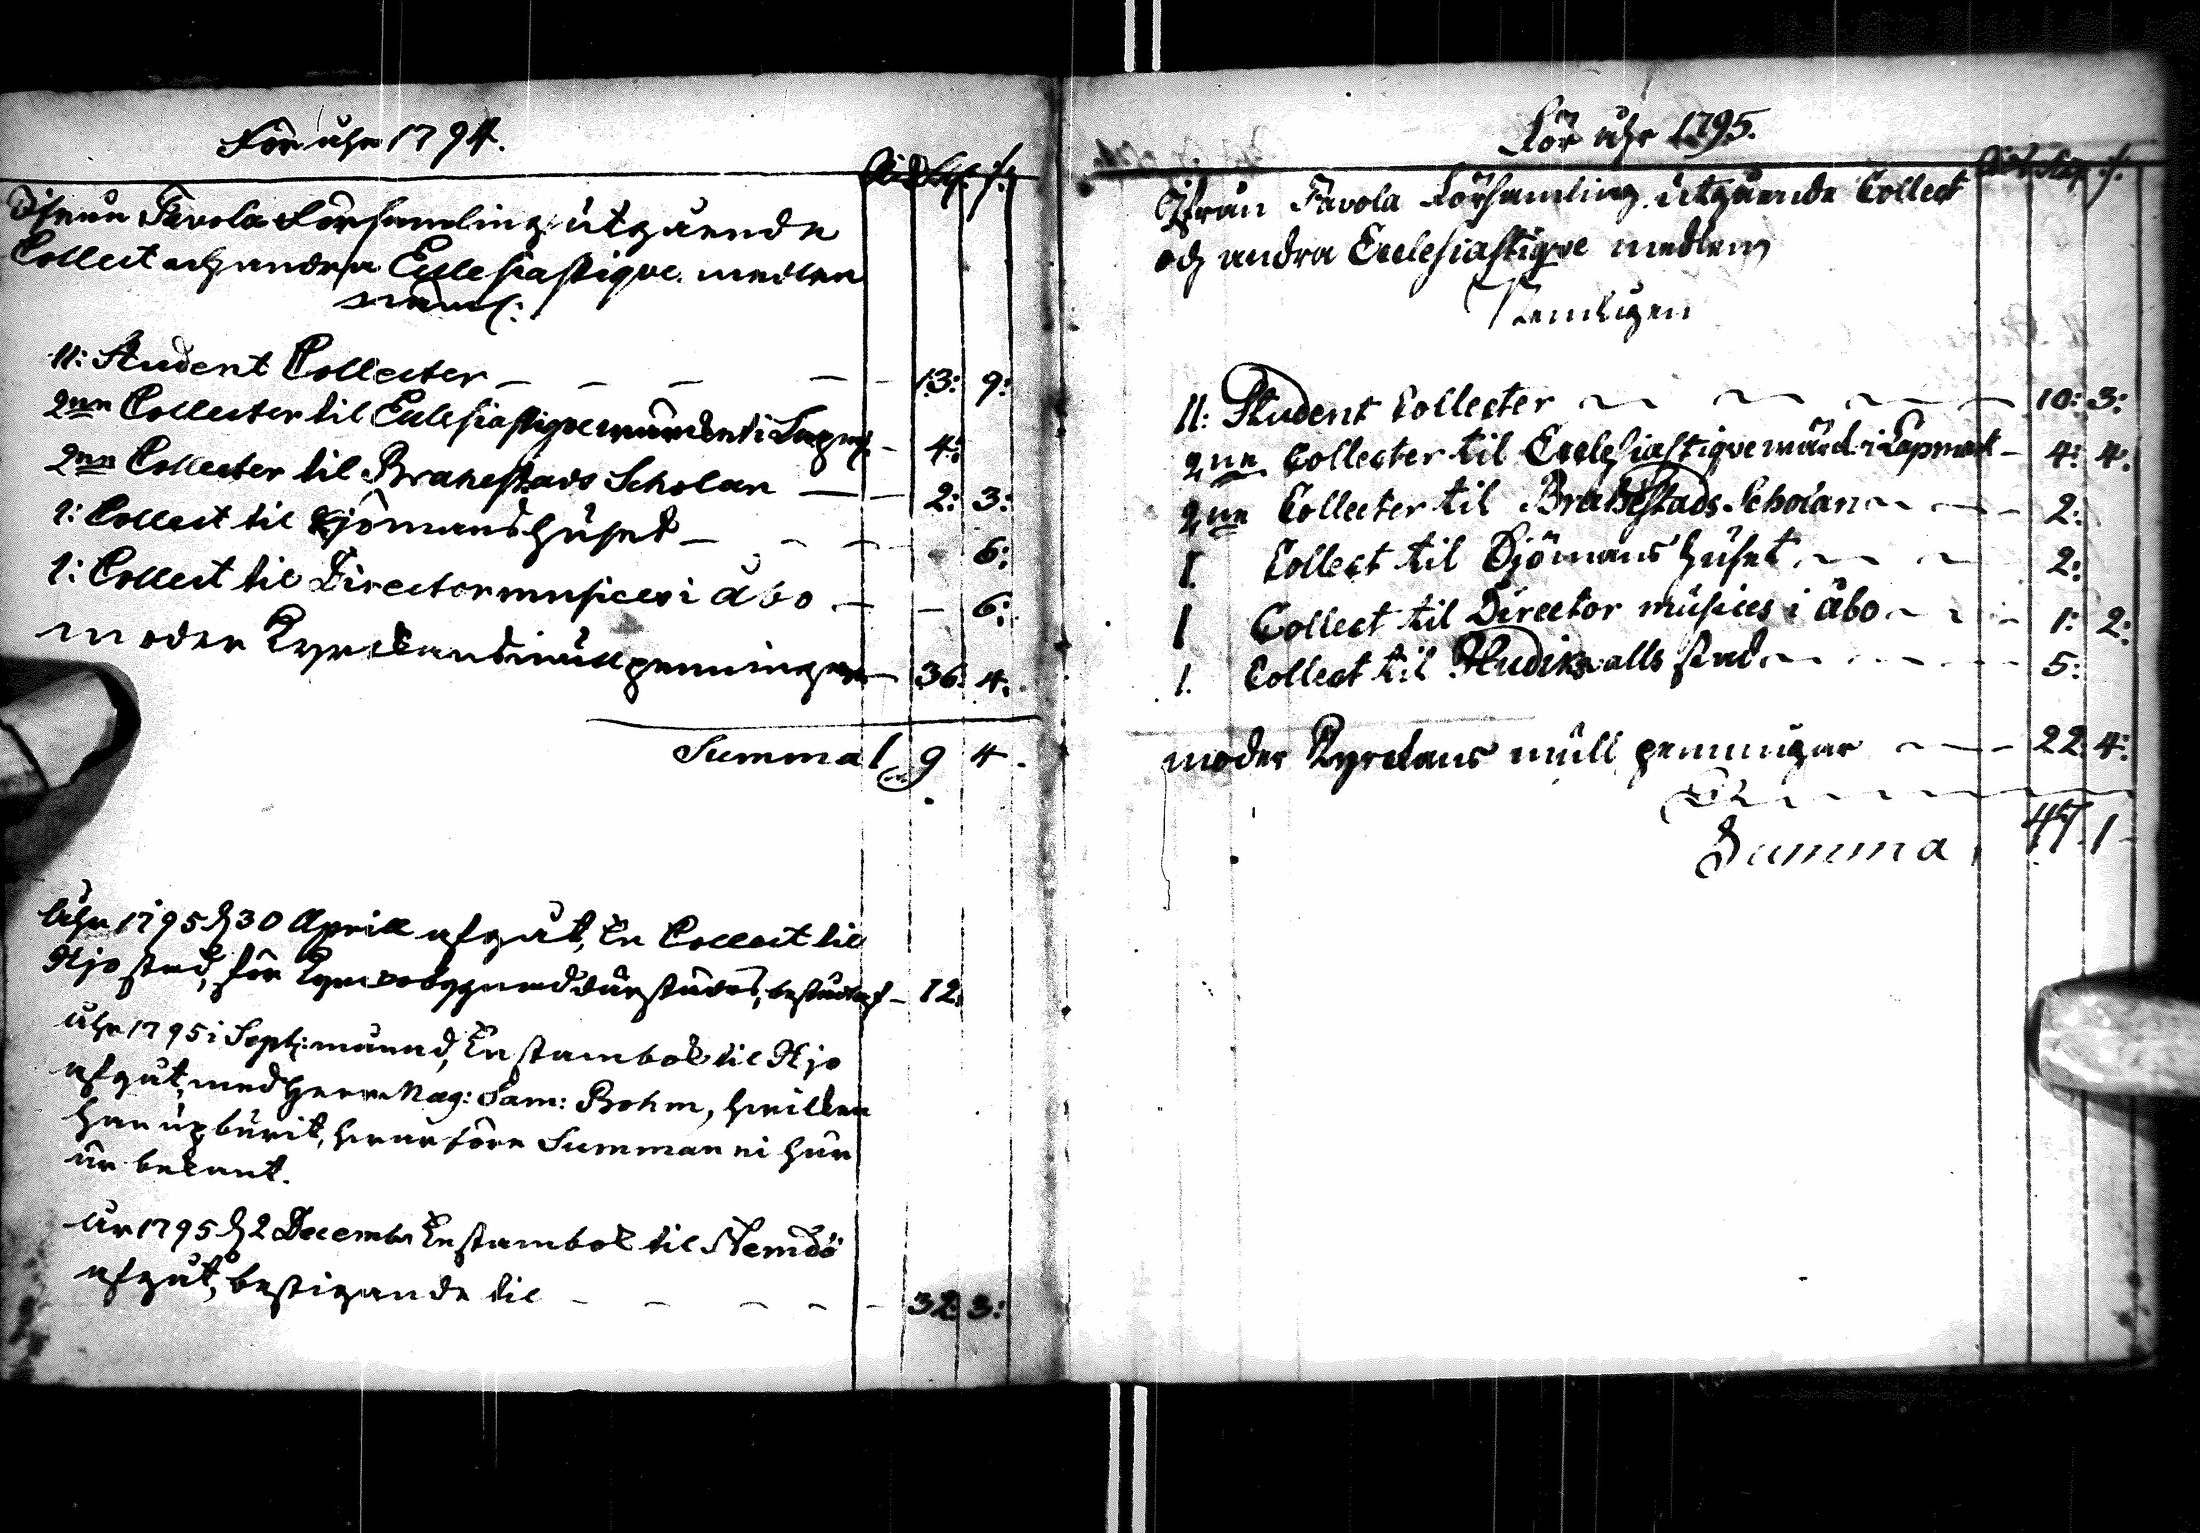 För åhr 1794.
Rid Sk: /:
Ifrån Tavola Församling utgående
Collect och andra Ecclesiastique medlen
näml:
11: Student Collecter — — — — 13: 9:
2ne Collecter til Ecclesiastiqueværdet i Lapm: – 4:
2ne Collecter til Brahestads Scholan — — 2: 3:
1: Collect til Sjömanshuset — — — 6:
1: Collect til Director musices i Åbo — — 6:
moder Kyrckans mullpenningar — 36: 4:
Summa 1 9 4.
Åhr 1795 d 30 Aprill afgåt, En Collect til
Hjo stad, för Kyrckobyggnad därstädes, – 12:
Åhr 1795 i Sept: månad, En stambok til Hjo
afgåt, med Herr Mag: Sam: Bohm, hvilken
han upburit, hvarföre Summan ei här
är bekant.
År 1795 d 2 December En stambok til Nemdö
afgåt, bestigande til — — — — 32: 3:
För åhr 1795.
Rid Sk: /:
Ifrån Tavola Församling utgående Collect
och andra Ecclesiastique medlen
Nemligen
11: Student Collecter — — — — 10: 3:
2ne Collecter til Ecclesiastiqueværd: i Lapmark – 4: 4.
2ne Collecter til Brahestads Scholan — — 2:
1 Collect til Sjömans huset — — 2:
1 Collect til Director musices i Åbo — — 1: 2:
1. Collect til Hudiksvalls stad — — — 5:
moder Kyrckans mull penningar — — 22: 4:
Summa 47 1